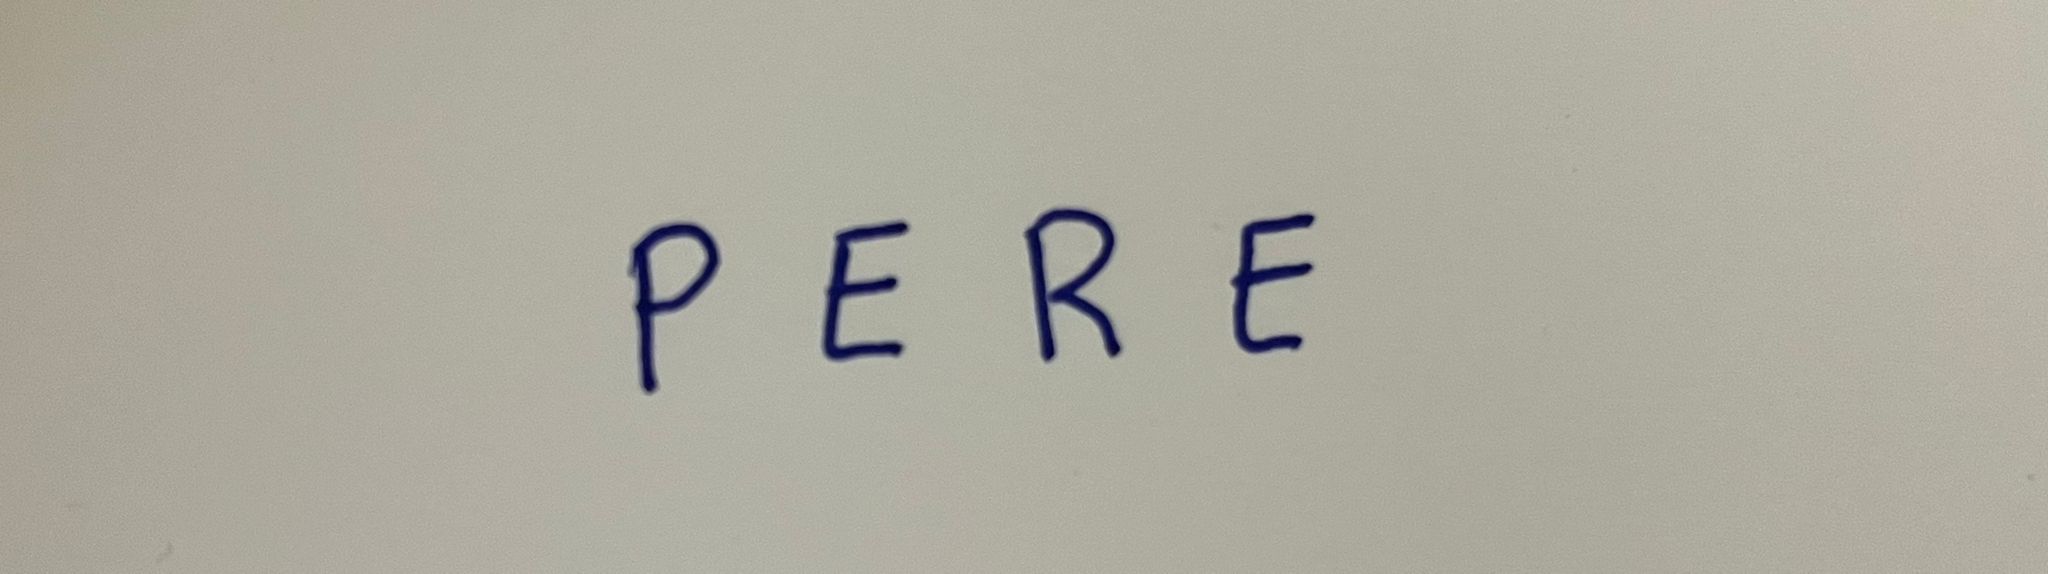 P E R E